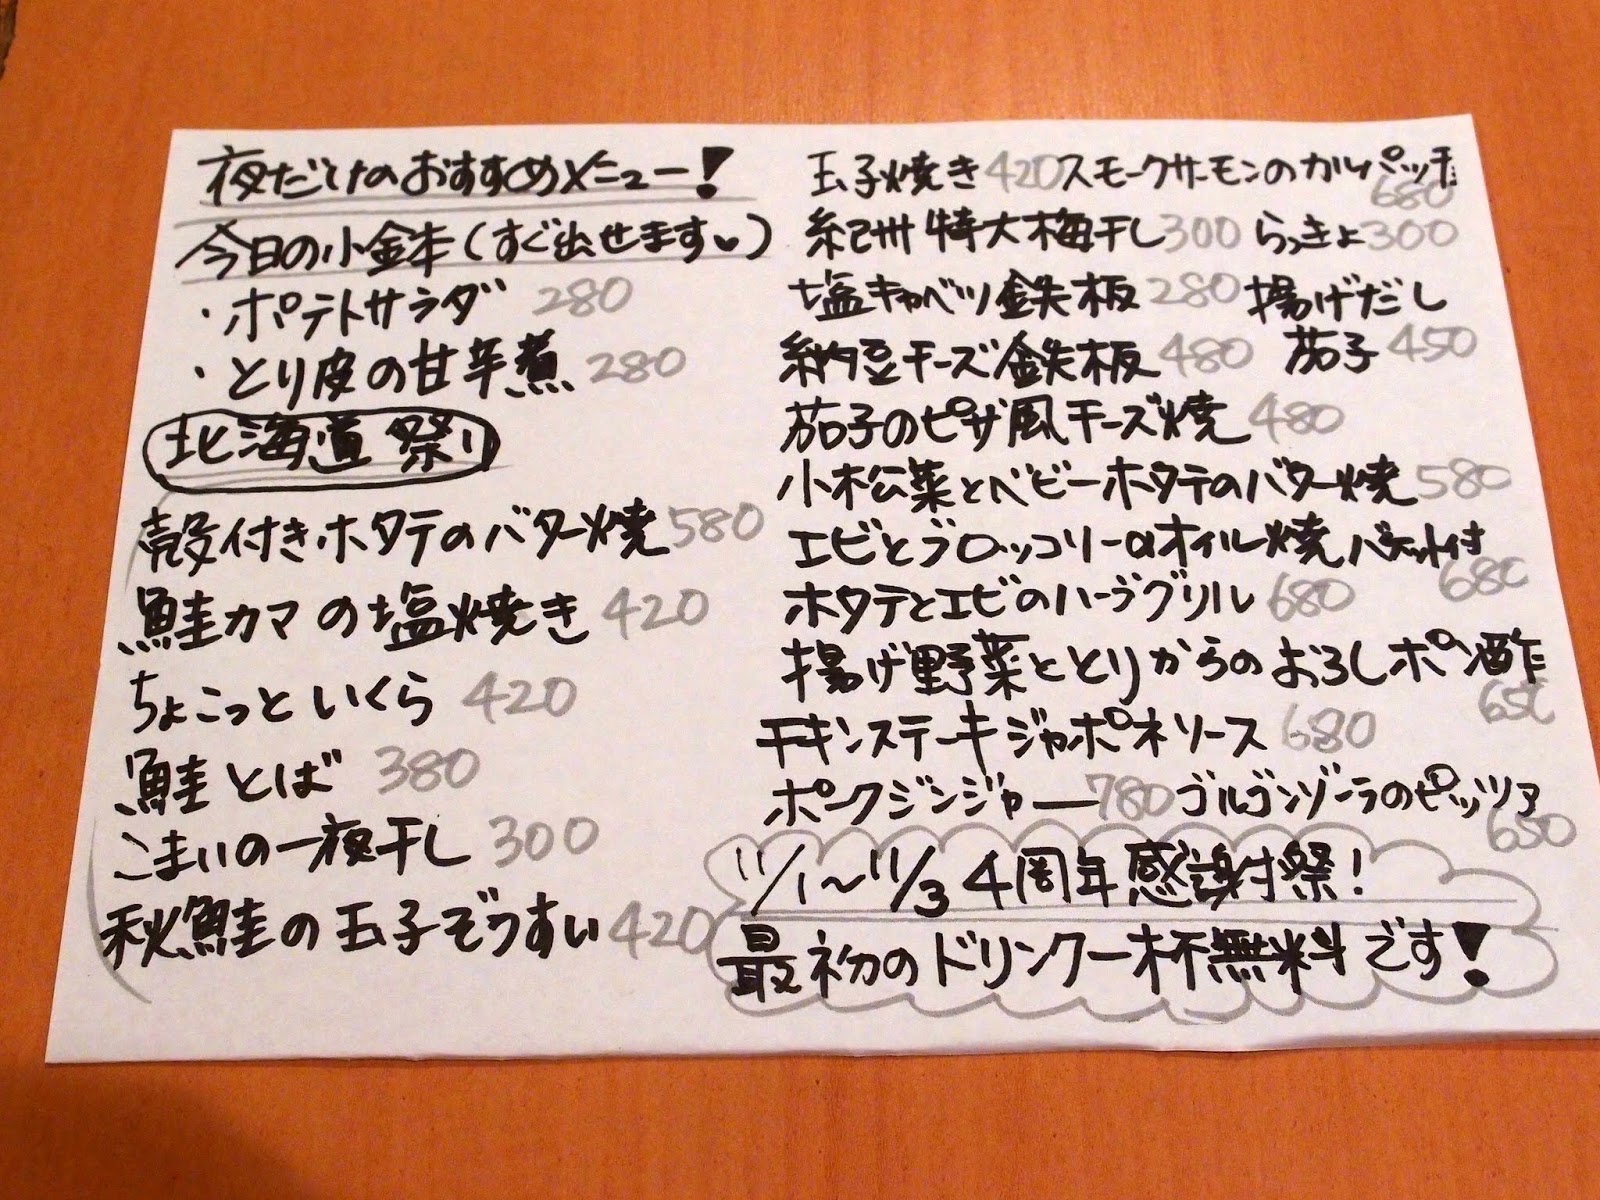 夜だけのおすすめメニュー!
今日の小鉢(すぐ出せます♥)
・ポテトサラダ 280
・とり皮の甘辛煮 280
北海道祭り
殻付きホタテのバター焼 580
鮭カマの塩焼き 420
ちょこっといくら 420
鮭とば 380
こまいの一夜干し 300
秋鮭の玉子ぞうすい 420
玉子焼き 420 スモークサーモンのカルパッチョ
680
紀州特大梅干し 300 らっきょ 300
塩キャベツ鉄板 280 揚げだし
納豆チーズ鉄板 480 茄子 450
茄子のピザ風チーズ焼 480
小松菜とベビーホタテのバター焼 580
エビとブロッコリーのオイル焼 バケット付
680
ホタテとエビのハーブグリル 680
揚げ野菜ととりからのおろしポン酢
650
チキンステーキジャポネソース 680
ポークジンジャー 780 ゴルゴンゾーラのピッツァ
650
11/1〜11/3 4周年感謝祭!
最初のドリンク一杯無料です!